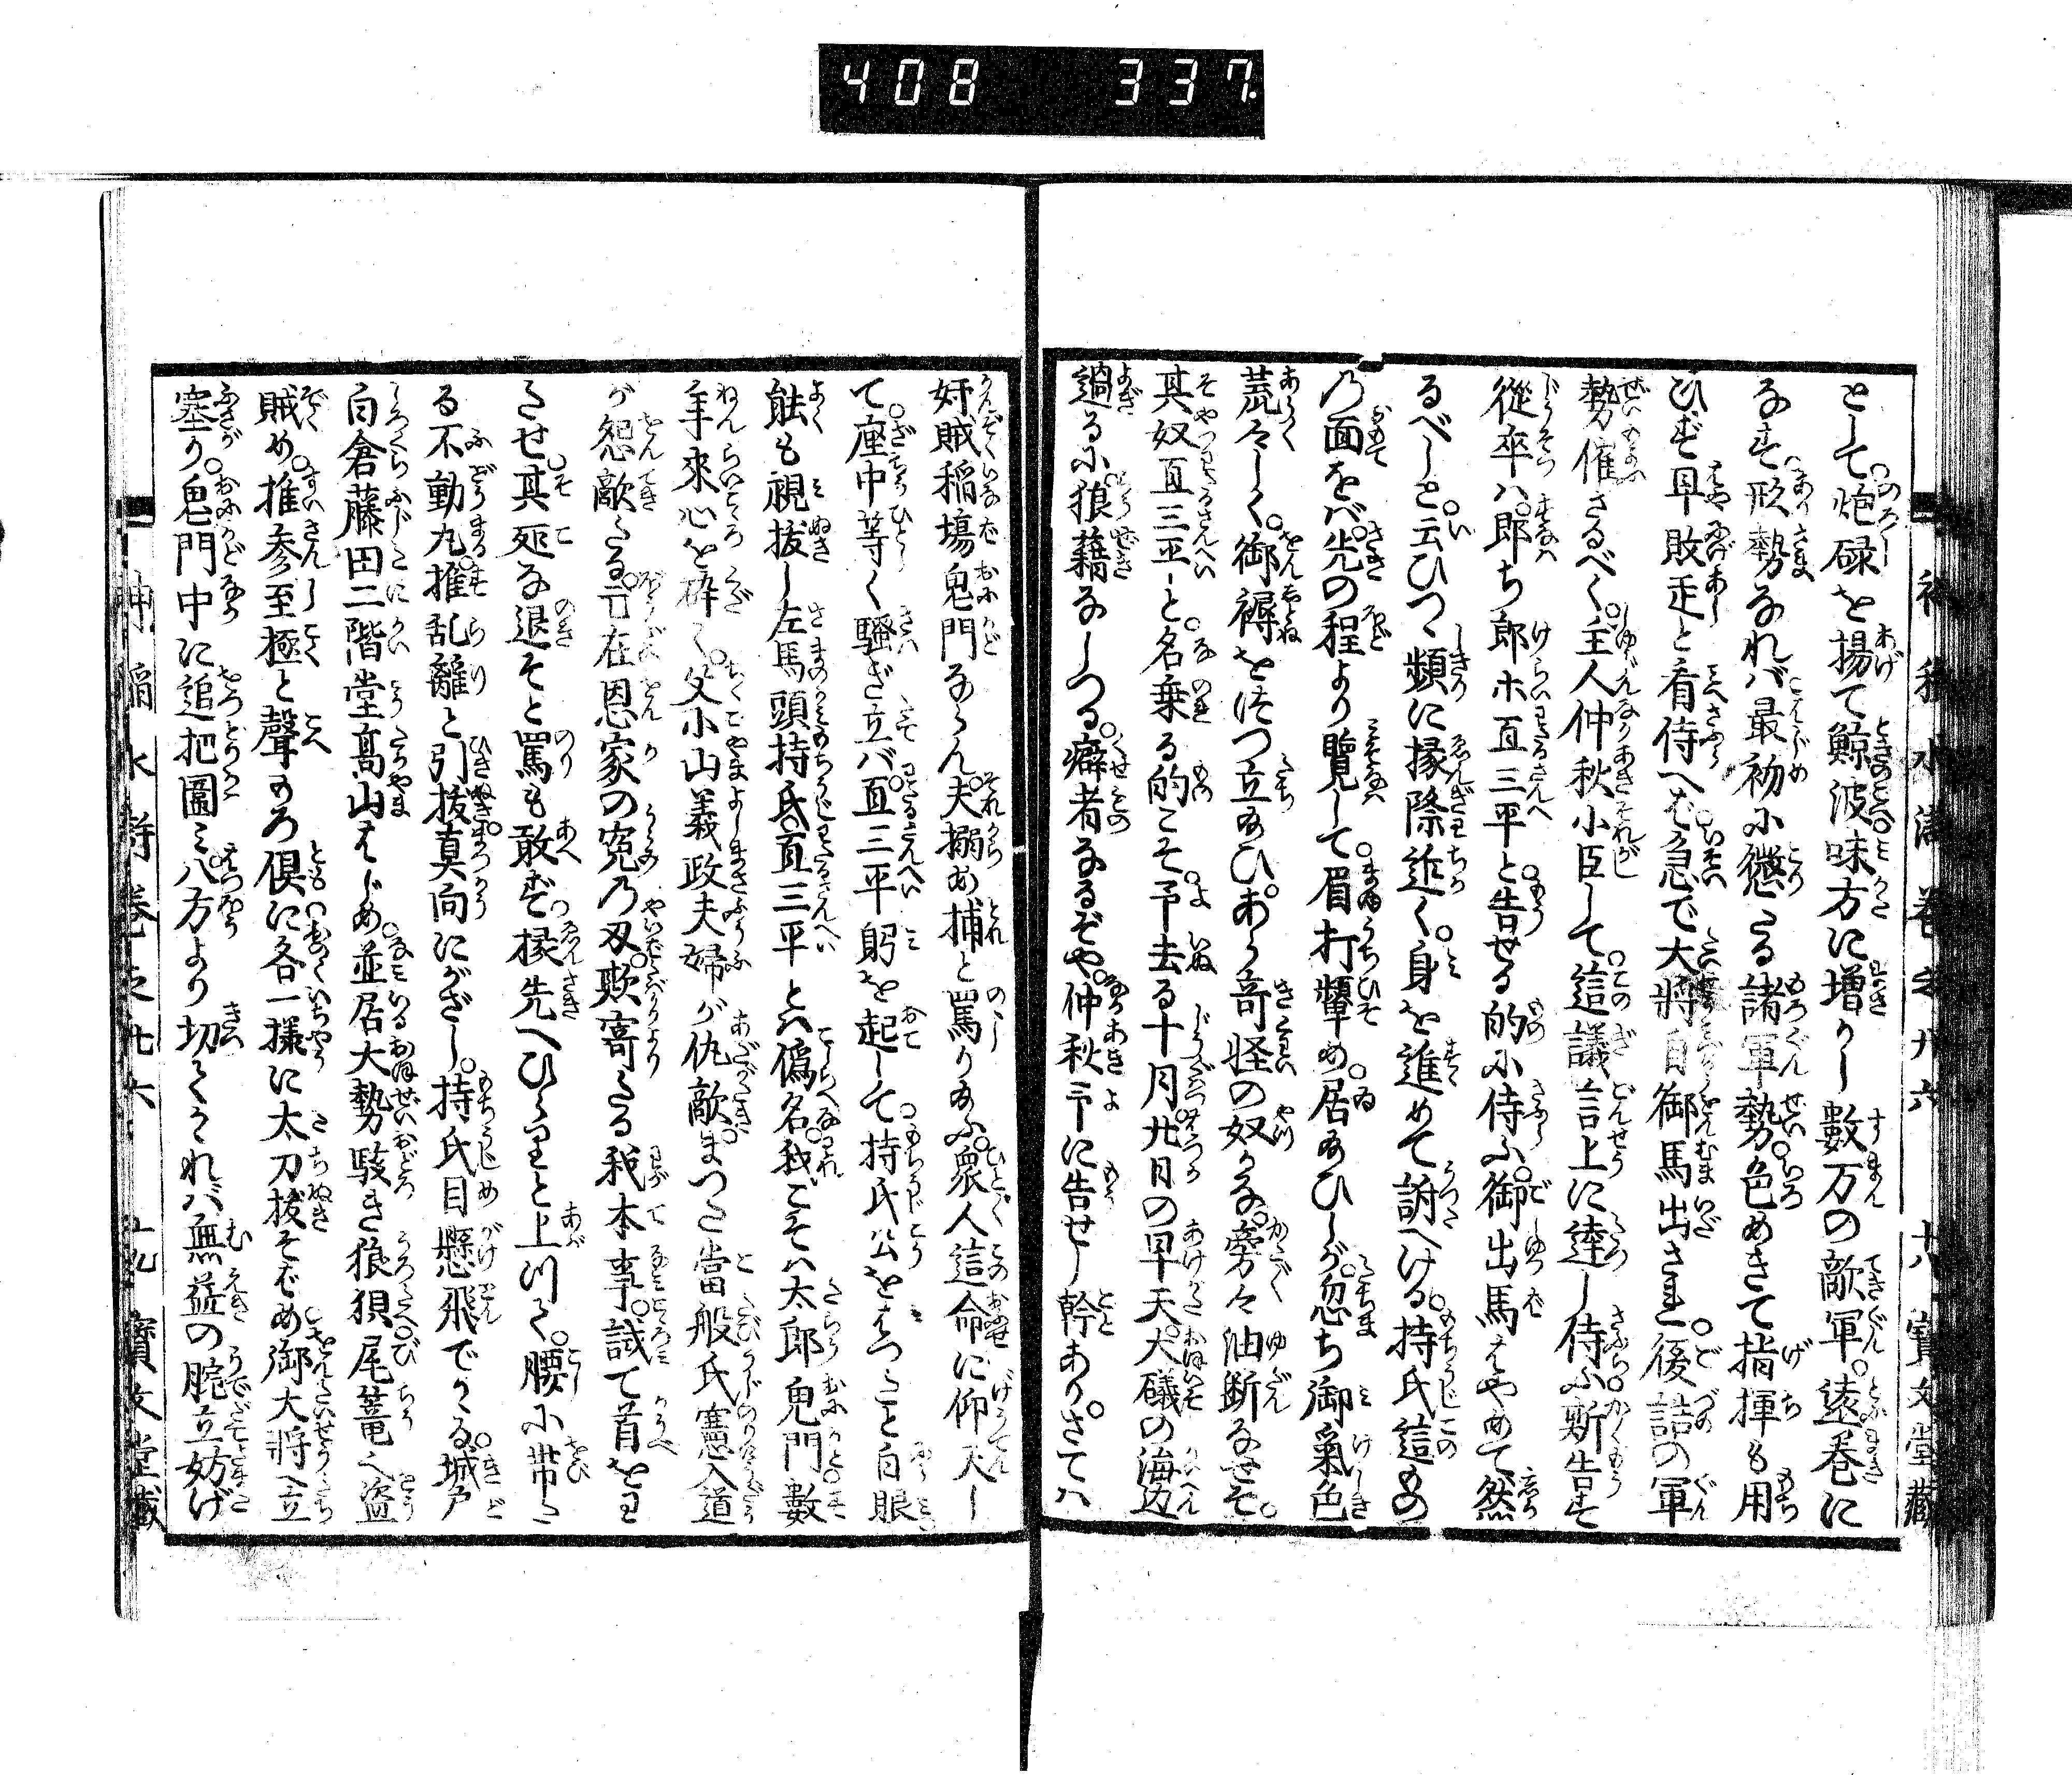 408 337
として。炮碌を揚て鯨波。味方に増かし數万の敵軍。遠巻に
なす。形勢なれバ最初に懲たる諸軍勢。色めきて指揮も用
ひず早敗走と看侍へば。急で大將自御馬出され。後詰の軍
勢催さるべく。主人仲秋小臣して。這議言上に逹し侍ふ。斯告す
從卒ハ。郎ち郎ホ亘三平と。告せる的に侍ふ。御出馬はやめて然
るべしと。云ひつゝ頻に縁際近く。身を進めて訴へける。持氏這もの
の面をバ。先の程より覽して。眉打顰め。居給ひしが。忽ち御氣色
荒々しく。御褥をはつ立給ひ。あら奇怪の奴かな。旁々油断なせそ。
其奴亘三平と。名乗る的こそ。予去る十月廿日の早天。大礒の海辺
過るに。狼藉なしつる。癖者なるぞや。仲秋予に告せし幹あり。さてハ
奸賊稲塲鬼門ならん。夫搦め捕と罵り給ふ。衆人這命に仰天し
て。座中等く騒ぎ立バ。亘三平躬を起して。持氏公をはつたと白眼
能も視拔し左馬頭持氏。亘三平とハ僞名。我こそハ太郎鬼門。數
年來心を砕く。父小山義政夫婦が仇敵。まつた當般氏憲入道
が怨敵たる。亡在恩家の寃の刄。欺寄たる我本事。試て首をわ
たせ。其処な退そと罵も敢ず。縁先へひらりと上川て。腰に帯た
る不動丸。推乱離と引拔。真向にかざし。持氏目懸飛でかゝる。城戸
白倉藤田二階堂高山はじめ。並居大勢駭き狼狽。尾篭之盗
賊め。推参至極と聲かけつ。倶に各一様に太刀拔そばめ。御大將へ立
塞り。鬼門中に追把圖ミ。八方より切てかゝれバ。無益の腕立妨げ
巻之廿六 十八 寶文堂藏
仲稲水滸巻之廿六 十九 寶文堂藏